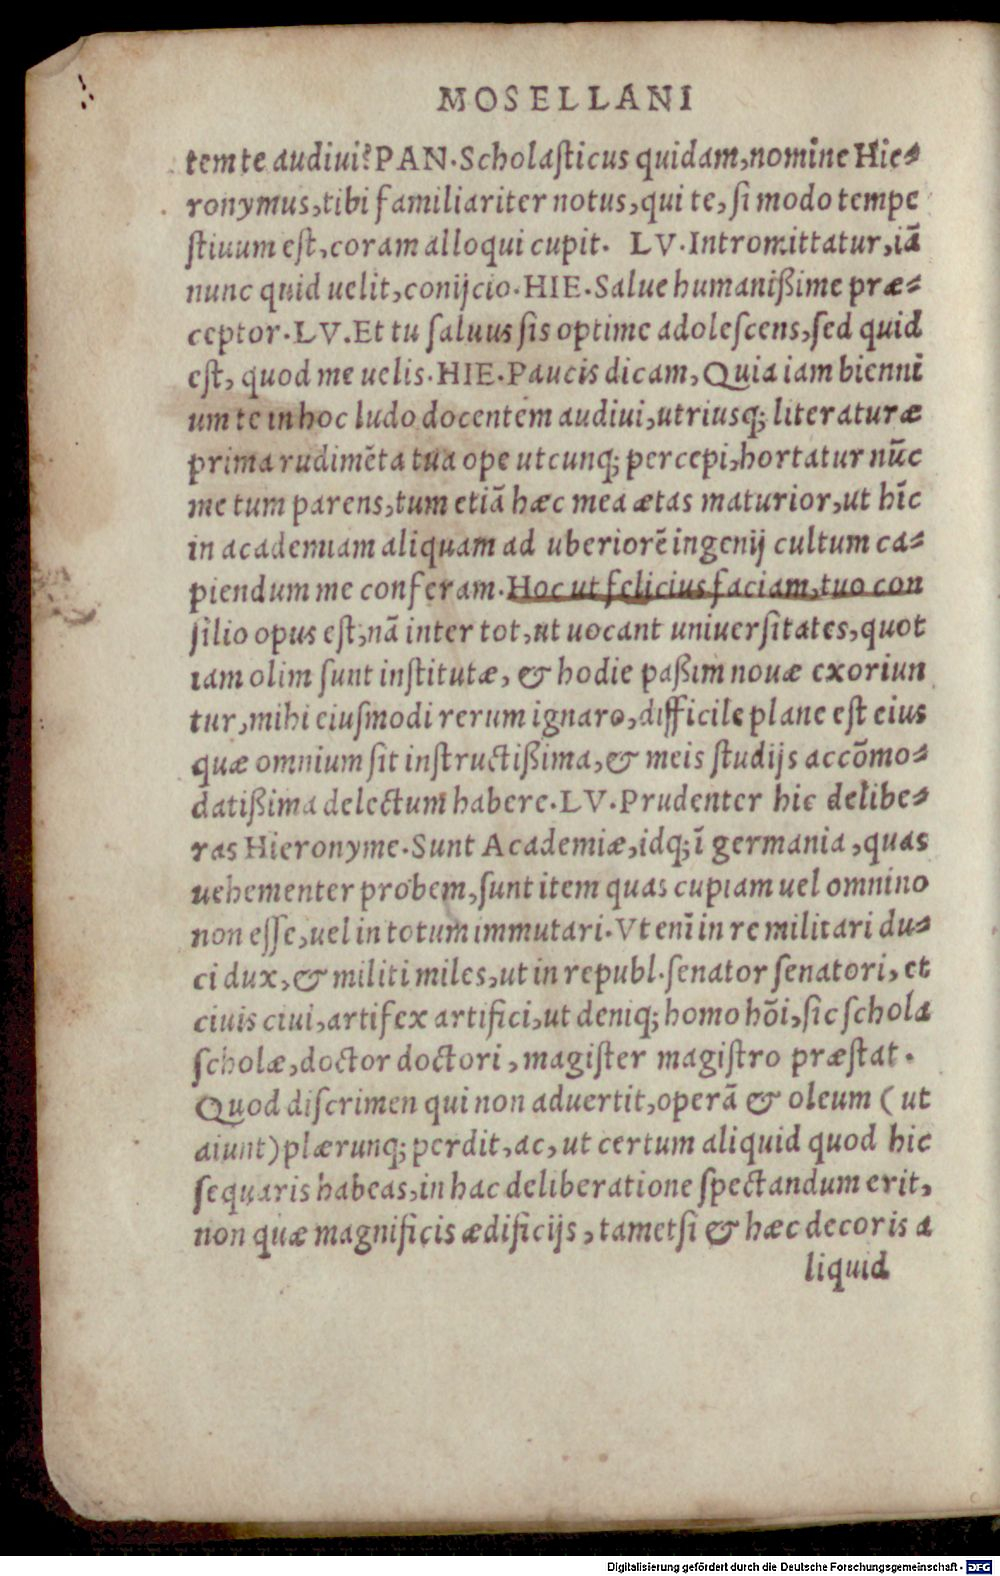 MOSELLANI
tem te audiui? PAN. Scholaſticus quidam, nomine Hie-
ronymus, tibi familiariter notus, qui te, ſi modo tempe
ſtiuum eſt, coram alloqui cupit. LV. Intromittatur, iã
nunc quid uelit, conijcio. HIE. Salue humanißime præ-
ceptor. LV. Et tu ſaluus ſis optime adoleſcens, ſed quid
eſt, quod me uelis. HIE. Paucis dicam, Quia iam bienni
um te in hoc ludo docentem audiui, utriusq; literaturæ
prima rudimẽta tua ope utcunq; percepi, hortatur nũc
me tum parens, tum etiã hæc mea ætas maturior, ut hĩc
in academiam aliquam ad uberiorẽ ingenij cultum ca-
piendum me conferam. Hoc ut felicius faciam, tuo con
ſilio opus eſt, nã inter tot, ut uocant uniuerſitates, quot
iam olim ſunt inſtitutæ, & hodie paßim nouæ exoriun
tur, mihi eiuſmodi rerum ignaro, difficile plane eſt eius
quæ omnium ſit inſtructißima, & meis ſtudijs accõmo-
datißima delectum habere. LV. Prudenter hic delibe-
ras Hieronyme. Sunt Academiæ, idq; ĩ germania, quas
uehementer probem, ſunt item quas cupiam uel omnino
non eſſe, uel in totum immutari. Vt enĩ in re militari du-
ci dux, & militi miles, ut in republ. ſenator ſenatori, et
ciuis ciui, artifex artifici, ut deniq; homo hõi, ſic ſchola
ſcholæ, doctor doctori, magiſter magiſtro præſtat.
Quod diſcrimen qui non aduertit, operã & oleum (ut
aiunt) plærunq; perdit, ac, ut certum aliquid quod hic
ſequaris habeas, in hac deliberatione ſpectandum erit,
non quæ magnificis ædificijs, tametſi & hæc decoris a
liquid
Digitalisierung gefördert durch die Deutsche Forschungsgemeinschaft - DFG